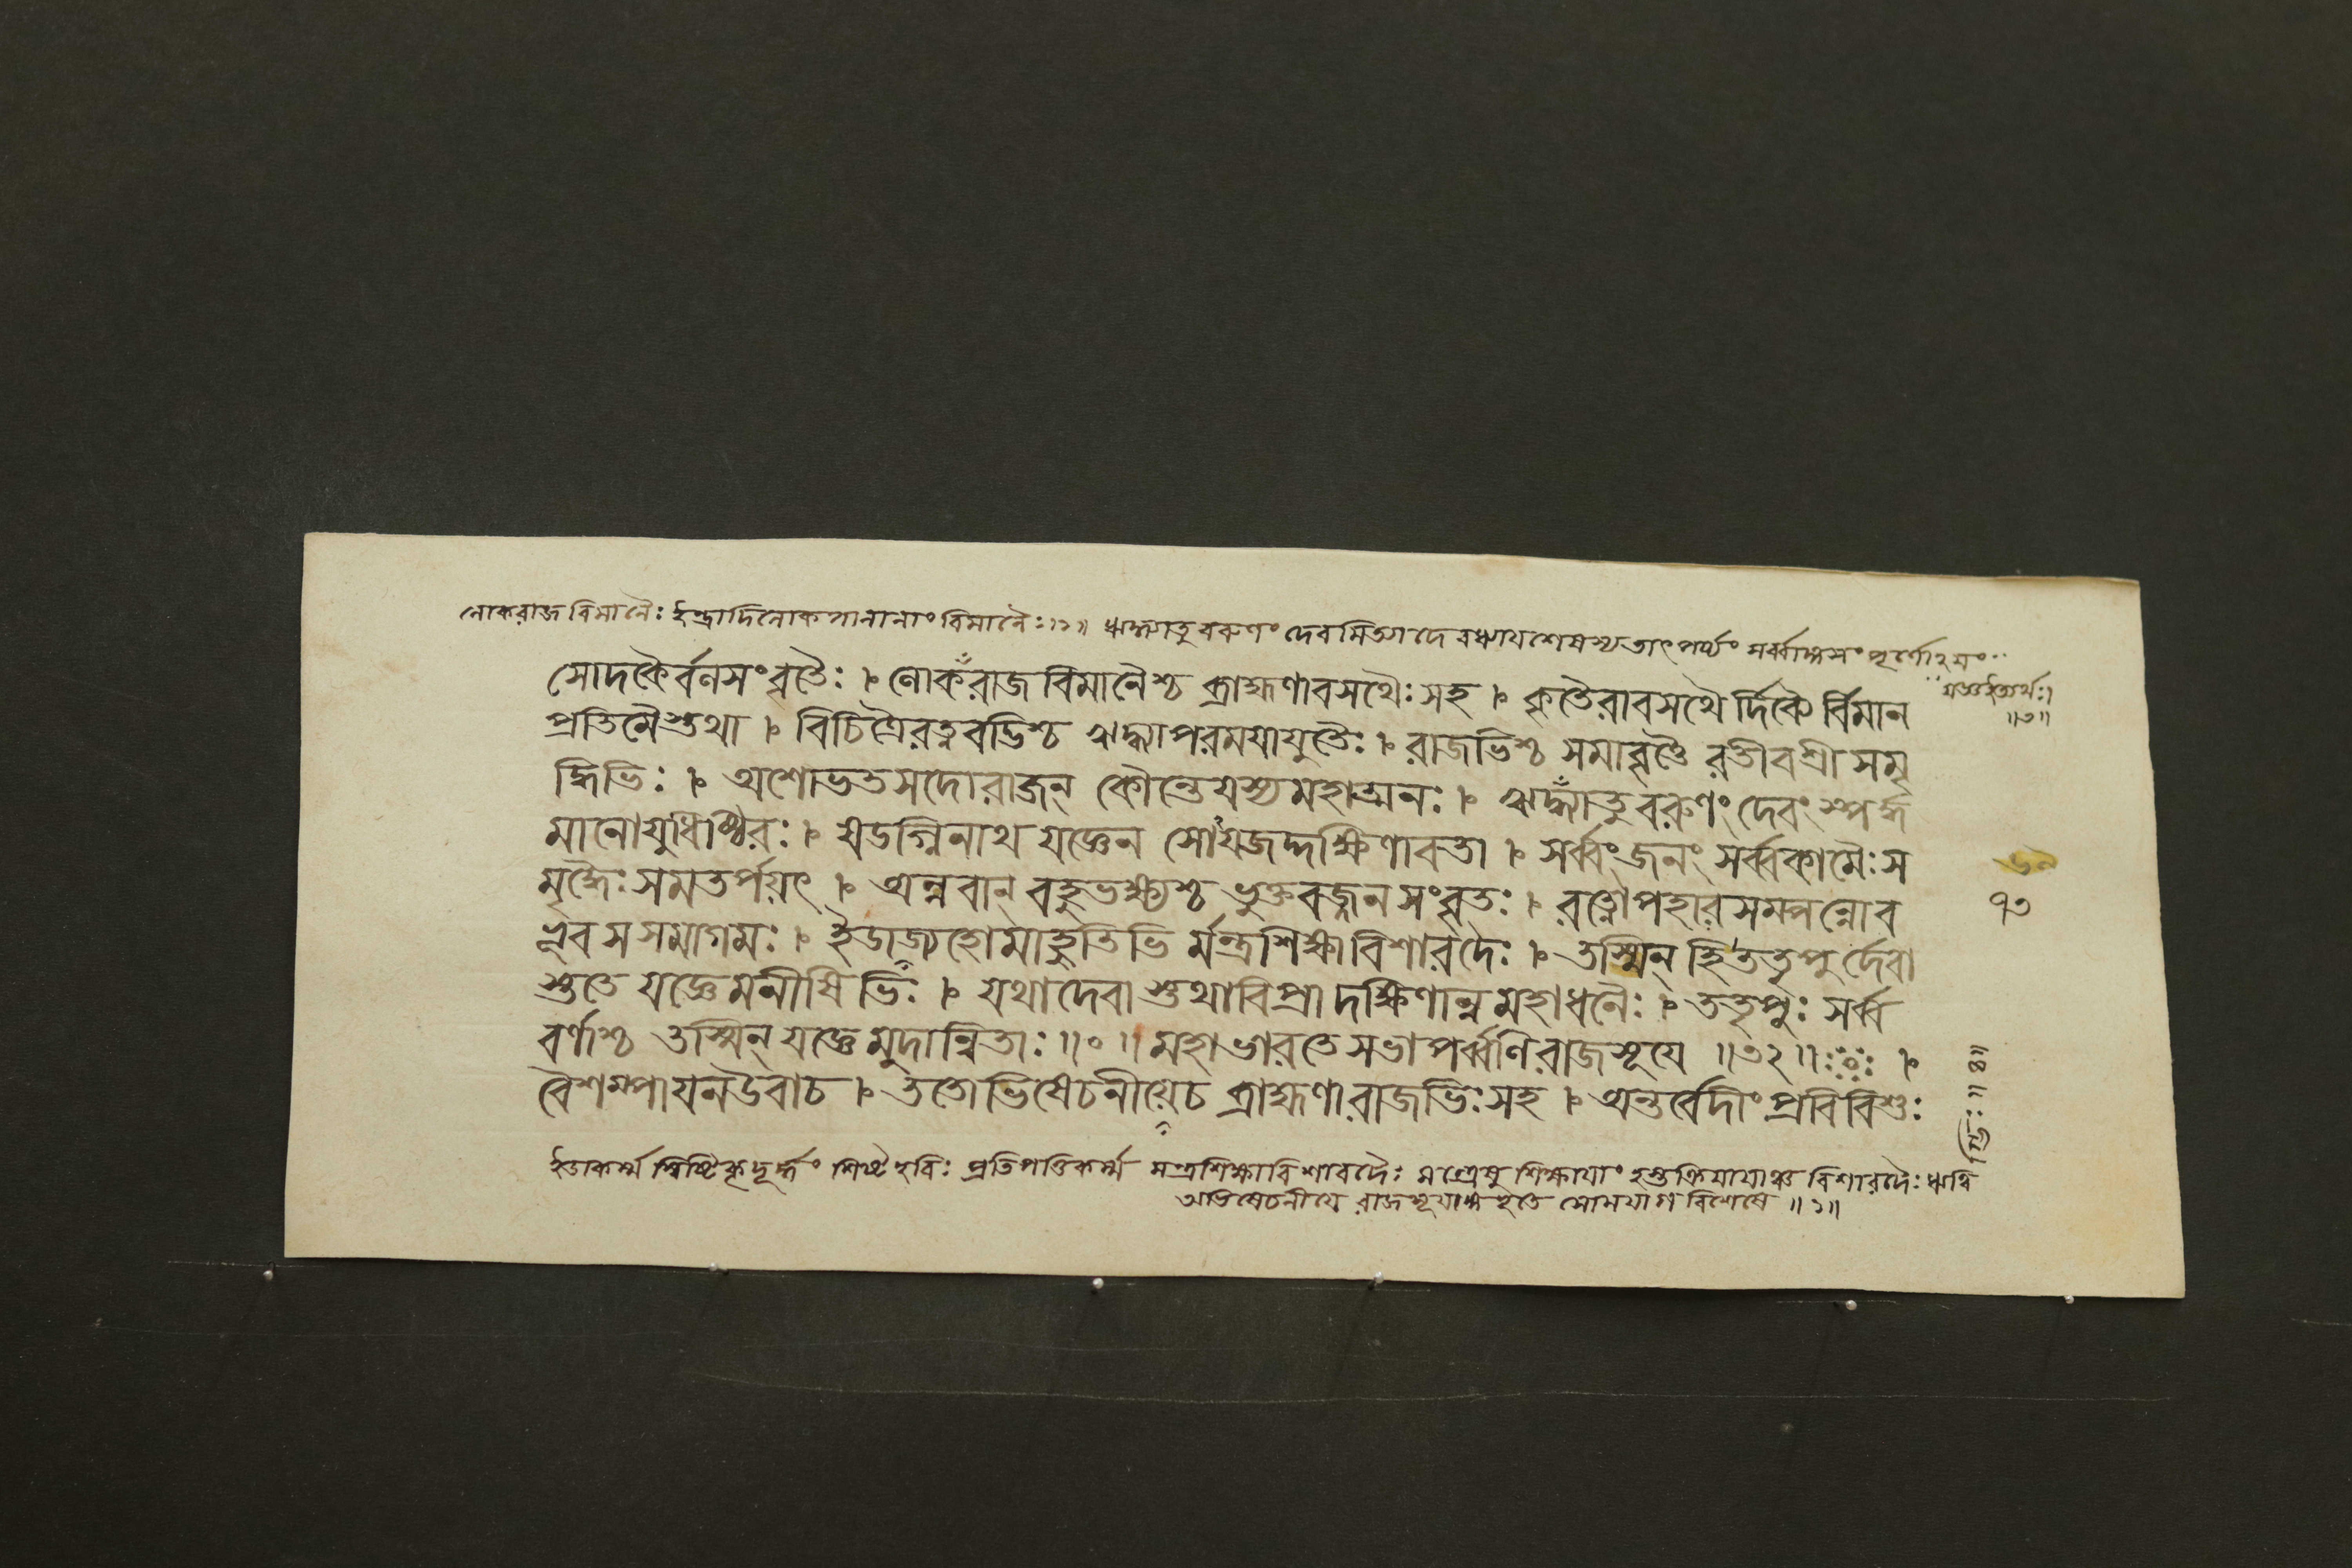 লোকরাজবিমানৈঃ ইন্দ্রাদিলোকপালানাং বিমানৈঃ ॥১॥ ঋদ্ধ্যাতু বরুণং দেবমিত্যাদেরধ্যায়শেষস্য তাৎপর্য্যং সর্ব্বাঙ্গসংপূর্ণোঽয়ং
যজ্ঞইত্যর্থঃ।
॥৩॥
সোদকৈর্বনসংবৃতৈঃ । লোকরাজবিমানৈশ্চ ব্রাহ্মণাবসথৈঃ সহ । কৃতৈরাবসথৈর্দিব্যৈর্বিমান
প্রতিমৈস্তথা । বিচিত্রৈরত্নবদ্ভিশ্চ ঋদ্ধ্যাপরময়াযুতৈঃ । রাজভিশ্চ সমাবৃতৈ রতীবশ্রীসমৃ
দ্ধিভিঃ । অশোভতসদোরাজন্ কৌন্তেয়স্যমহাত্মনঃ । ঋদ্ধ্যাতু বরুণং দেবং স্পর্দ্ধ
মানোযুধিষ্ঠিরঃ । ষডগ্নিনাথ যজ্ঞেন সোযজদ্দক্ষিণাবতা । সর্ব্বংজনং সর্ব্বকামৈঃ স
মৃদ্ধৈঃ সমতর্পয়ৎ । অন্নবান্ বহুভক্ষ্যশ্চ ভুক্তবজ্জনসংবৃতঃ । রত্নোপহারসম্পন্নোব
ভূব স সমাগমঃ । ইডাজ্যহোমাহুতিভি র্মন্ত্রশিক্ষাবিশারদৈঃ । তস্মিন্ হি ততৃপুর্দেবা
স্ততে যজ্ঞে মনীষিভিঃ । যথাদেবাস্তথাবিপ্রা দক্ষিণান্নমহাধনৈঃ । ততৃপুঃ সর্ব্ব
বর্ণাশ্চ তস্মিন্ যজ্ঞে মুদান্বিতাঃ ॥০॥ মহাভারতে সভাপর্ব্বণি রাজসূয়ে ॥৩২॥ ।
বৈশম্পায়নউবাচ । ততোভিষেচনীয়েচ ব্রাহ্মণারাজভিঃ সহ । অন্তর্বেদীং প্রবিবিশুঃ
৭৩
ইডাকর্ম্ম স্বিষ্টিকৃদূর্দ্ধং শিষ্টহবিঃ প্রতিপত্তিকর্ম্ম মন্ত্রশিক্ষাবিশারদৈঃ মন্ত্রেষু শিক্ষায়াং হস্তক্রিয়ায়াঞ্চ বিশারদৈঃ ঋত্বি
গ্ভিঃ ॥৪॥
অভিষেচনীয়ে রাজসূয়াঙ্গভূতে সোমযাগ বিশেষে ॥১॥